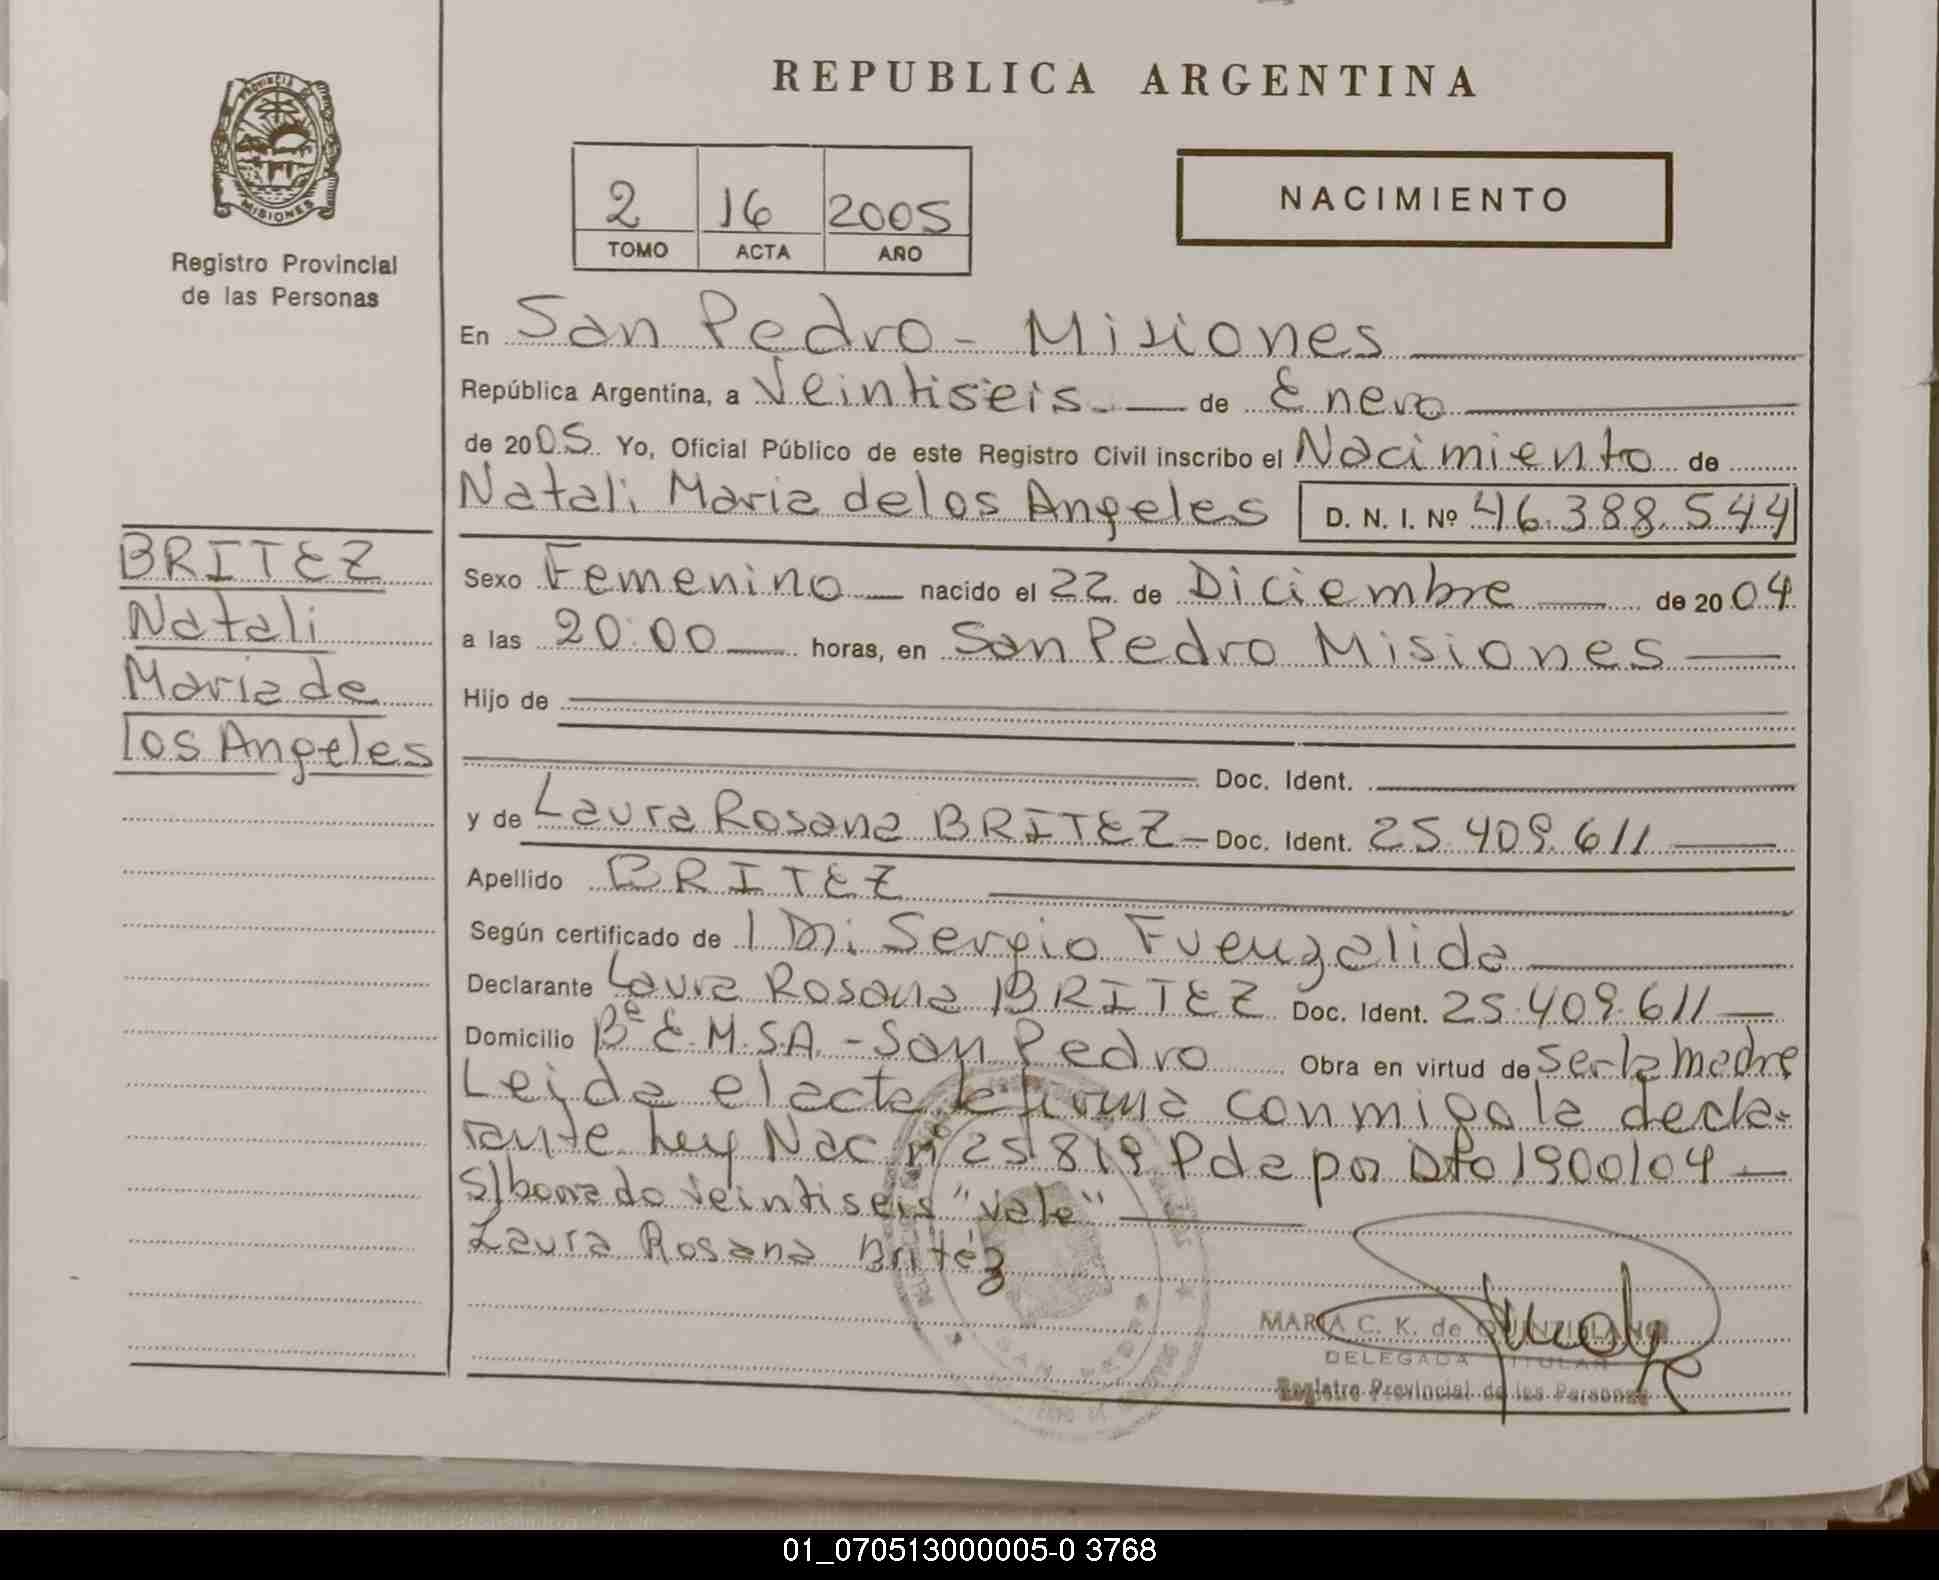 REPUBLICA ARGENTINA
PROVINCIA DE
MISIONES
Registro Provincial
de las Personas
2 16 2005
TOMO ACTA AÑO
NACIMIENTO
En San Pedro - Misiones
República Argentina, a Veintiseis de Enero
de 2005. Yo, Oficial Público de este Registro Civil inscribo el Nacimiento de
Natali Maria de los Angeles D. N. I. Nº 46.388.544
BRITEZ
Natali
Maria de
los Angeles
Sexo Femenino nacido el 22 de Diciembre de 2004
a las 20:00 horas, en San Pedro Misiones
Hijo de
Doc. Ident.
y de Laura Rosana BRITEZ - Doc. Ident. 25.409.611
Apellido BRITEZ
Según certificado de Sergio Fuenzalida
Declarante Laura Rosana BRITEZ Doc. Ident. 25.409.611
Domicilio E.M.S.A. - San Pedro Obra en virtud de ser la madre
Leida el acta la firma conmigo la decla-
rante Ley Nac nº 25819 Pda por Dto 1900/04
S/borrado veintiseis "vale"
Laura Rosana Britéz
SAN PEDRO
MARIA C. K. de QUINTILIANO
DELEGADA TITULAR
Registro Provincial de las Personas
01_070513000005-0 3768